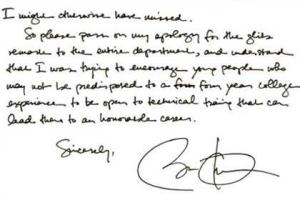 I might otherwise have missed.
So please pass on my apology for the glib
remark to the entire department, and understand
that I was trying to encourage young people who
may not be predisposed to a four year college
experience to be open to technical training that can
lead them to an honorable career.
Sincerely,